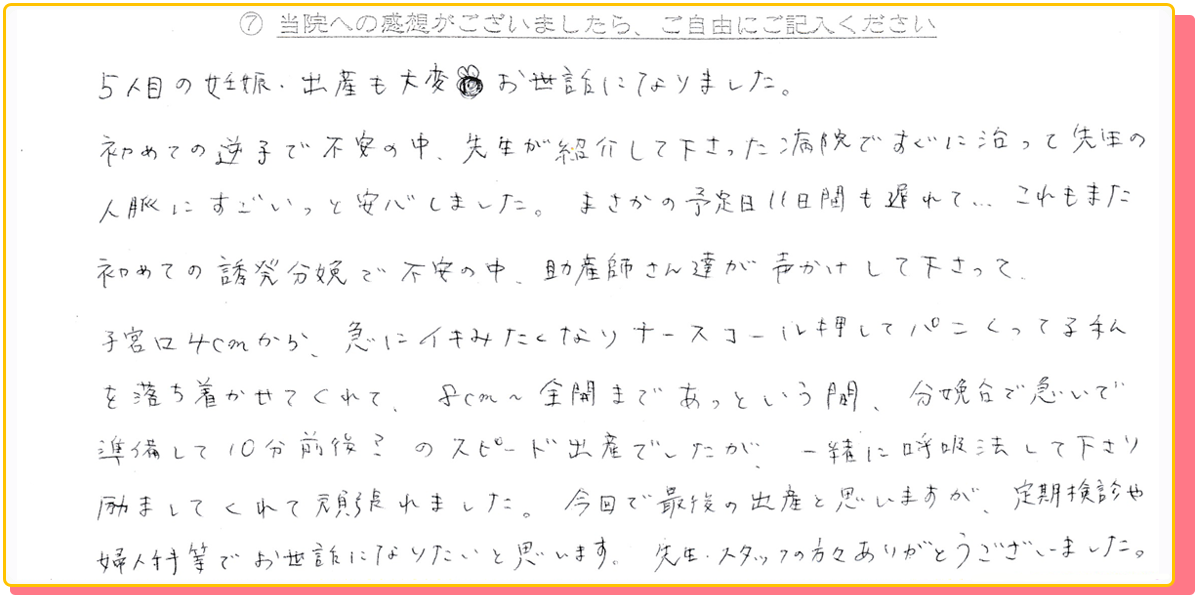 ⑦ 当院への感想がございましたら、ご自由にご記入ください
5人目の妊娠・出産も大変お世話になりました。
初めての逆子で不安の中、先生が紹介して下さった病院ですぐに治って先生の
人脈にすごいっと安心しました。まさかの予定日11日間も遅れて… これもまた
初めての誘発分娩で不安の中、助産師さん達が声かけして下さって、
子宮口4cmから、急にイキみたくなりナースコール押してパニくってる私
を落ち着かせてくれて、8cm～全開まであっという間、分娩台で急いで
準備して10分前後?のスピード出産でしたが、一緒に呼吸法して下さり
励ましてくれて頑張れました。今回で最後の出産と思いますが、定期検診や
婦人科等でお世話になりたいと思います。先生・スタッフの方々ありがとうございました。